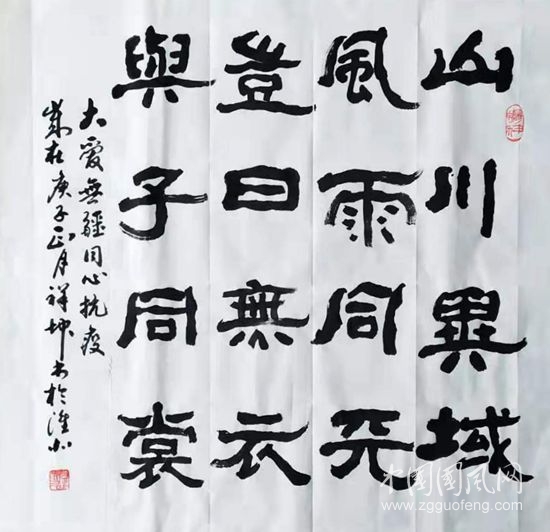 山川異域
風雨同天
豈曰無衣
與子同裳
大愛無疆同心抗疫
歲在庚子正月祥坤書於淮北
中国国风网
www.zgguofeng.com